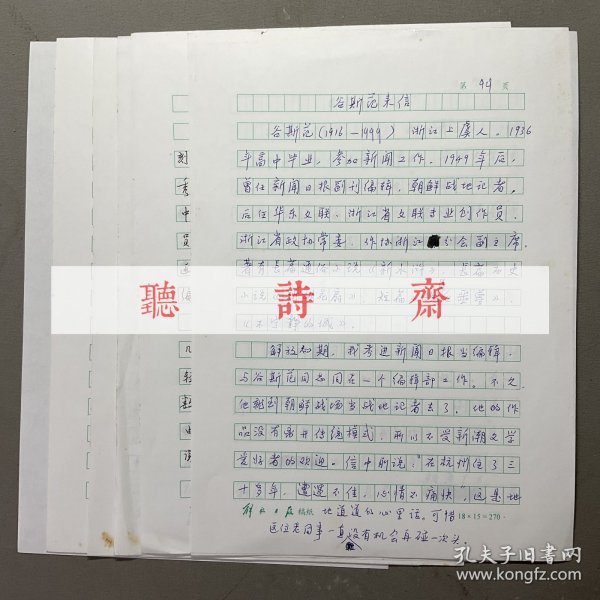 第 44 页
谷斯范来信
谷斯范(1916—1999) 浙江上虞人。1936
年高中毕业,参加新闻工作。1949年后,
曾任新闻日报副刊编辑,朝鲜战地记者。
后任华东文联、浙江省文联专业创作员,
浙江省政协常委、作协浙江分会副主席。
著有长篇通俗小说《新水浒》,长篇历史
小说
聽詩齋
《不宁静的城》。
解放初期,我考进新闻日报当编辑,
与谷斯范同志同在一个编辑部工作。不久
他就到朝鲜战场当战地记者去了。他的作
品没有离开传统模式,所以不受新潮文学
爱好者的欢迎。信中所说:“在杭州住了三
十多年,遭遇不佳,心情不痛快”,这是他
解放日报稿纸 地道道的心里话。可惜 18×15=270
这位老同事一直没有机会再碰一次头。
孔夫子旧书网